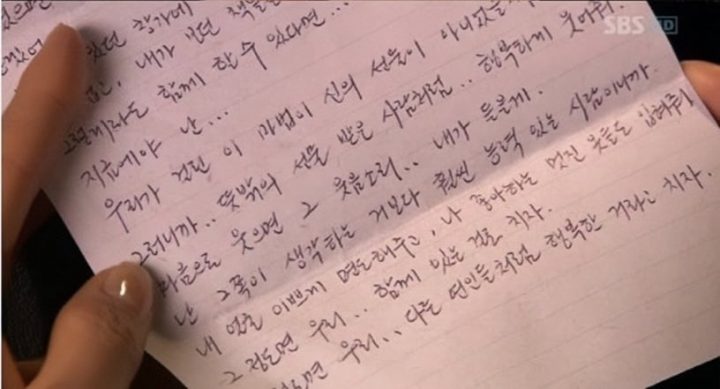 있던 향기에
내가 보던 책들
그렇게라도 함께 할 수 있다면...
지금에야 난...
우리가 걸린 이 마법이 신의 선물이 아니었을
그러니까.. 뜻밖의 선물 받은 사람처럼.. 행복하게 웃어줘.
마음으로 웃으면 그 웃음소리.. 내가 들을게.
난 그쪽이 생각하는 거보다 훨씬 능력 있는 사람이니까.
내 얼굴 이쁘게 면도해주고, 나 좋아하는 멋진 옷들도 입혀줘
그 정도면 우리.. 함께 있는 걸로 치자.
우리.. 다른 연인들처럼 행복한 거라고 치자.
SBS HD